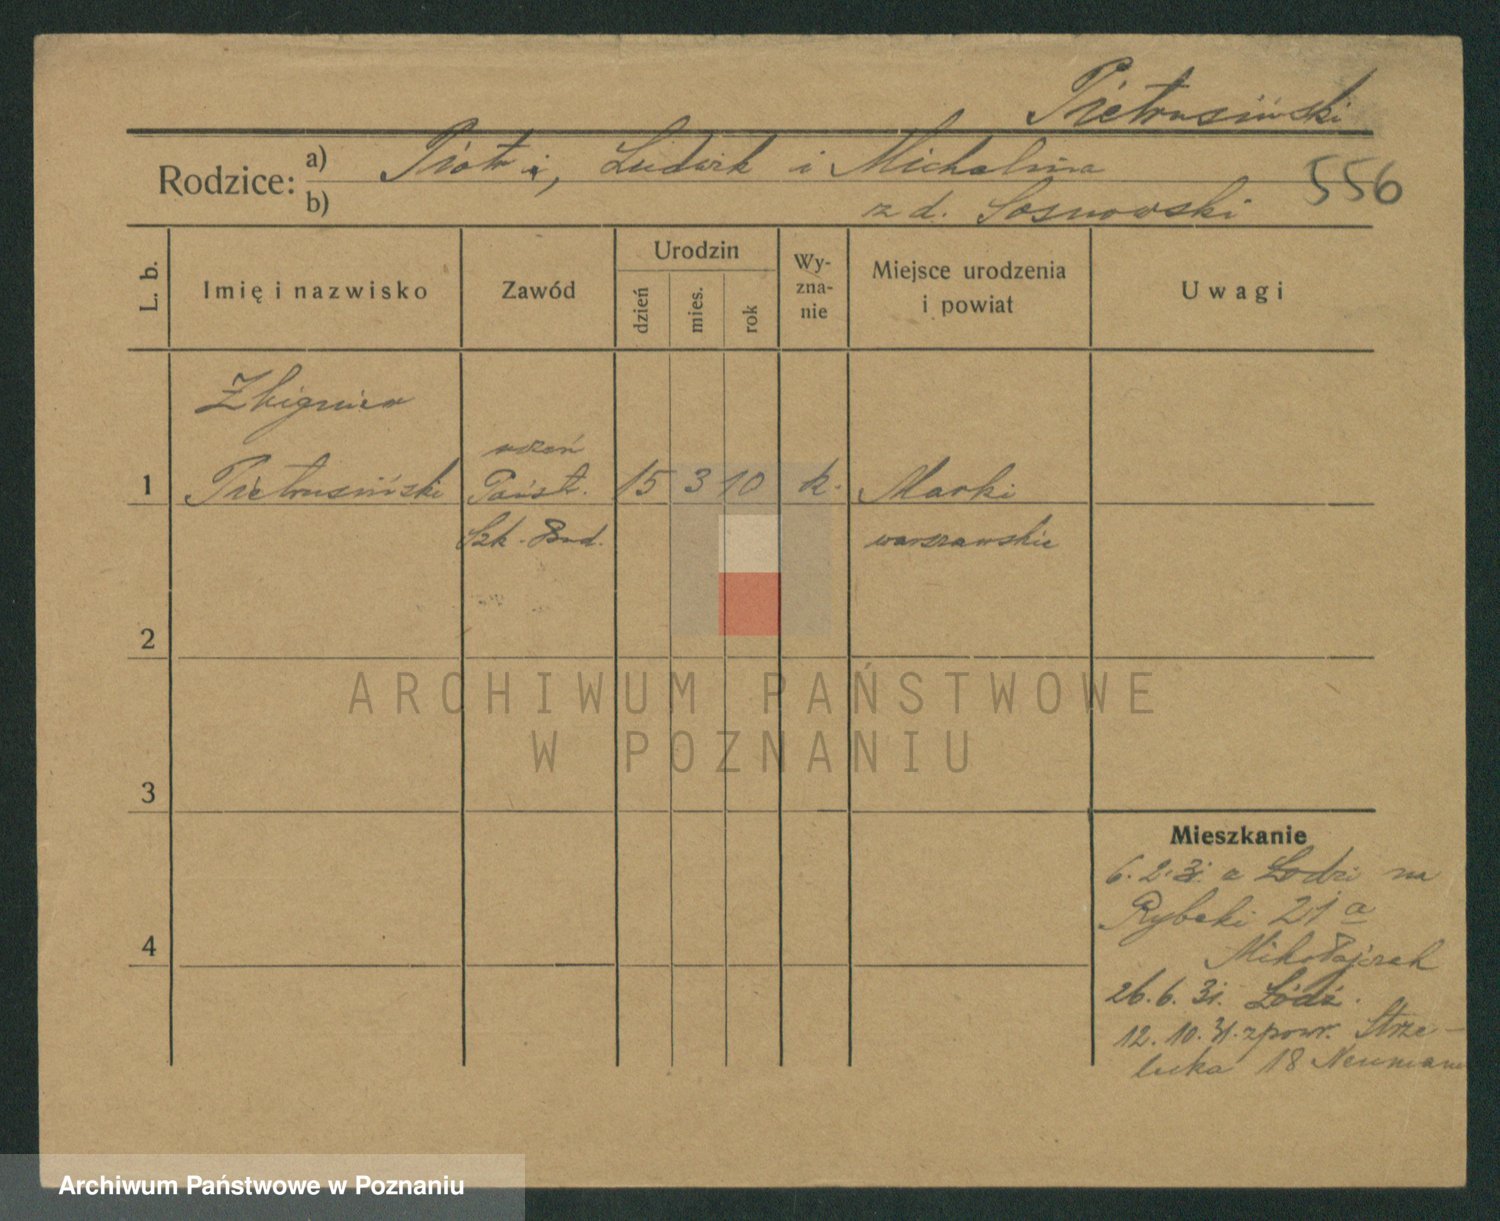 Pietrusiński
Rodzice: a) Piotr i, Ludwik i Michalina
b) z d. Sosnowski
556
L. b.
Imię i nazwisko
Zawód
Urodzin
dzień
mies.
rok
Wy-
zna-
nie
Miejsce urodzenia
i powiat
Uwagi
Zbigniew
uczeń
1 Pietrusiński Państw. 15 3 10 k. Marki
Szk. Bud. warszawskie
2
ARCHIWUM PAŃSTWOWE
W POZNANIU
3
Mieszkanie
6. 2. 31. z Łodzi na
Rybaki 21a
4
Mikołajczak
26. 6. 31. Łódź.
12. 10. 31. z powr. Strze-
lecka 18 Neumann
Archiwum Państwowe w Poznaniu